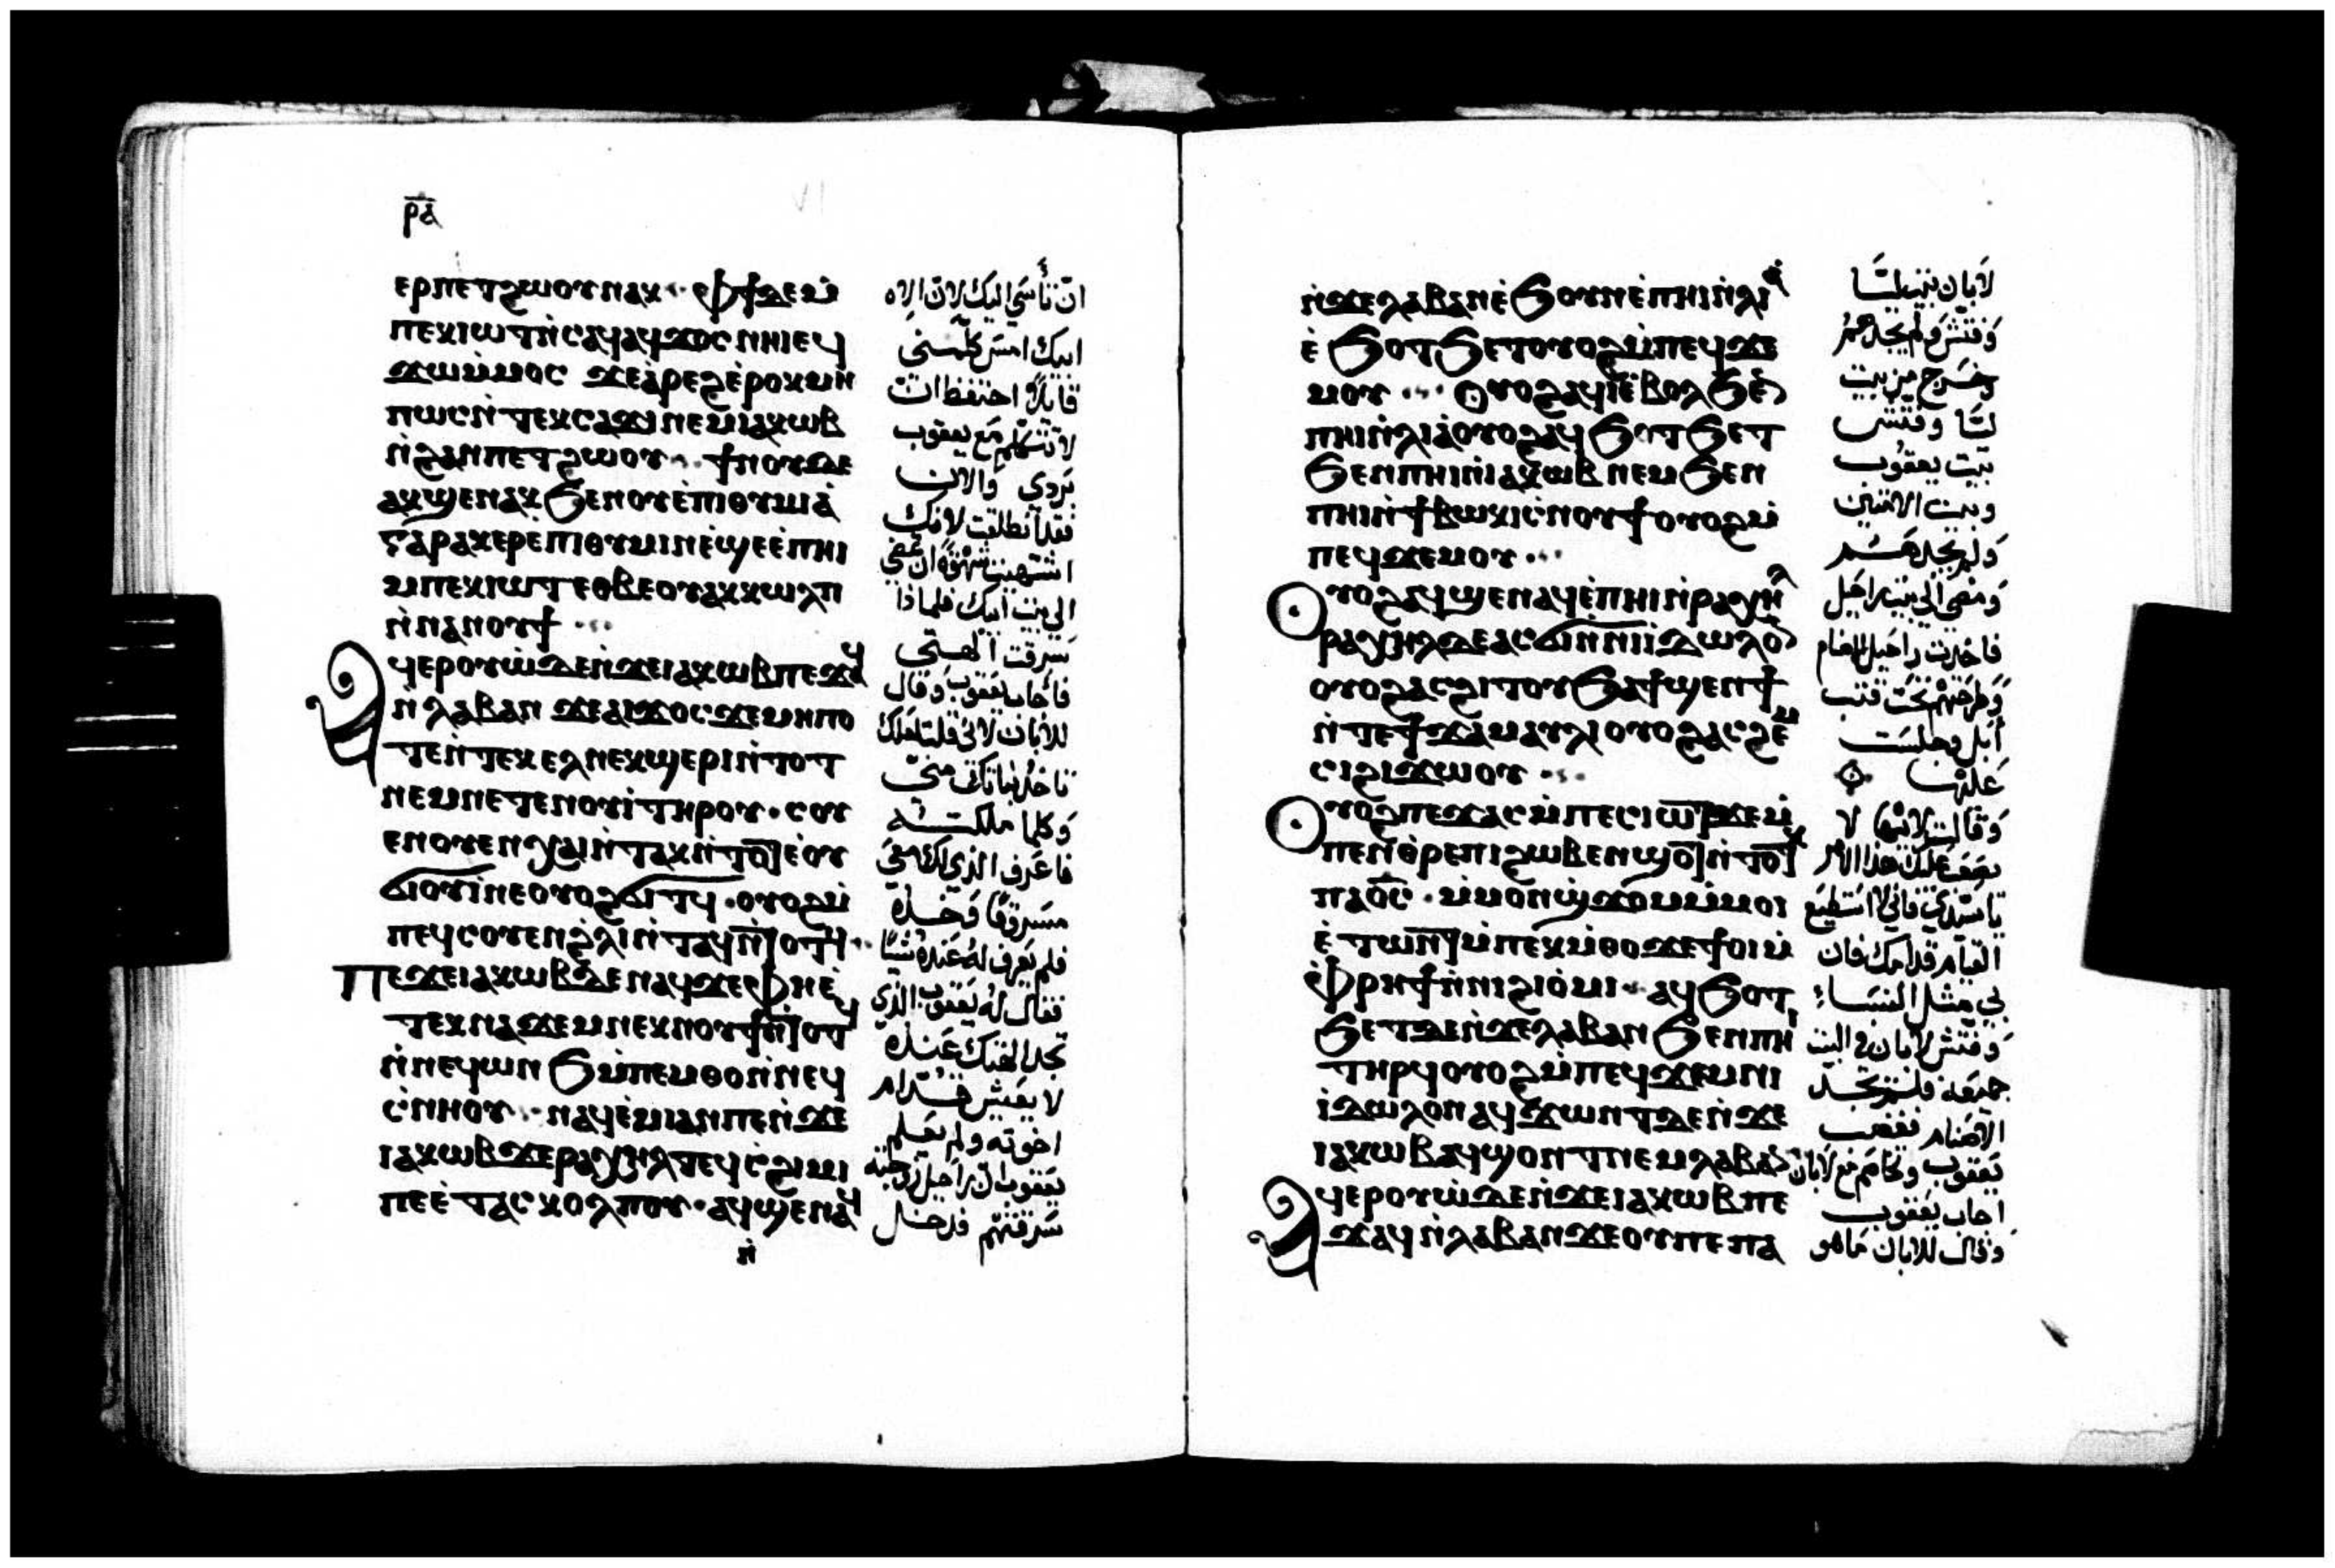 ⲣⲁ
ⲉⲣⲡⲉⲧϩⲱⲟⲩⲛⲁⲕ ⲫϯⲇⲉⲙ̇
ⲡⲉⲕⲓⲱⲧⲛ̇ⲥⲁϥⲁϥϫⲟⲥⲛⲏⲓⲉϥ
ϫⲱⲙ̇ⲙⲟⲥ ϫⲉⲁⲣⲉϩⲉ̇ⲣⲟⲕⲙⲏ
ⲡⲱⲥⲛ̇ⲧⲉⲕⲥⲁϫⲓⲛⲉⲙⲓⲁⲕⲱⲃ
ⲛ̇ϩⲁⲛⲡⲉⲧϩⲱⲟⲩ ϯⲛⲟⲩⲇⲉ
ⲁⲕϣⲉⲛⲁⲕϧⲉⲛⲟⲩⲉ̇ⲡⲓⲑⲩⲙⲓⲁ̇
ⲅⲁⲣⲁⲕⲉⲣⲉ̇ⲡⲓⲑⲩⲙⲓⲛⲉ̇ϣⲉⲉ̇ⲡⲏⲓ
ⲙⲡⲉⲕⲓⲱⲧⲉⲑⲃⲉⲟⲩⲁⲕⲕⲱⲗⲡ
ⲛ̇ⲛⲁⲛⲟⲩϯ
ⲁϥⲉⲣⲟⲩⲱ̇ⲇⲉⲛ̇ϫⲉⲓⲁⲕⲱⲃⲡⲉϫⲁϥ
ⲛ̇ⲗⲁⲃⲁⲛ ϫⲉⲁⲓϫⲟⲥϫⲉⲙⲏⲡⲟ
ⲧⲉⲛ̇ⲧⲉⲕⲉⲗⲛⲉⲕϣⲉⲣⲓⲛ̇ⲧⲟⲧ
ⲛⲉⲙⲛⲉⲧⲉⲛⲟⲩⲓ̇ⲧⲏⲣⲟⲩ ⲥⲟⲩ
ⲉⲛⲟⲩⲉⲛⲭⲁⲓⲛ̇ⲧⲁⲕⲛ̇ⲧⲟⲧⲉ̇ⲟⲩ
ϭⲓⲟⲩⲓ̇ⲛⲉⲟⲩⲟϩϭⲓⲧϥ ⲟⲩⲟϩⲙ̇
ⲡⲉϥⲥⲟⲩⲉⲛϩ̇ⲗⲓⲛ̇ⲧⲁϥⲛ̇ⲧⲟⲧϥ
ⲡⲉϫⲉⲓⲁⲕⲱⲃⲇⲉⲛⲁϥϫⲉⲫⲏⲉ̇
ⲧⲉⲕⲛⲁϫⲉⲙⲛⲉⲕⲛⲟⲩϯⲛ̇ⲧⲟⲧϥ
ⲛ̇ⲛⲉϥⲱⲛϧⲙ̇ⲡⲉⲙⲑⲟⲛ̇ⲛⲉϥ
ⲥ̇ⲛⲏⲟⲩ ⲛⲁϥⲉ̇ⲙⲓⲁⲛⲡⲉⲛ̇ϫⲉ
ⲓⲁⲕⲱⲃϫⲉⲣⲁⲭⲏⲗⲧⲉϥⲥ̇ϩⲓⲙⲓ
ⲡⲉⲉ̇ⲧⲁⲥⲕⲟⲗⲡⲟⲩ ⲁϥϣⲉⲛⲁϥ
ⲛ̇
ان نأسي اليك لان الاه
ابيك امس كلمني
قايلا احتفظ انت
لا تتكلم مع يعقوب
بردي والان
فقد انطلقت لانك
اشتهيت شهوة ان تمضي
الي بيت ابيك فلماذا
سرقت الهتي
فاجاب يعقوب وقال
للابان لاني قلت لعلك
تاخذ بناتك مني
وكلما ملكته
فاعرف الذي لك معي
مسروقا فخذه
فلم يعرف له عنده شيا
فقال له يعقوب الذي
تجد الهتك عنده
لا يعيش قدام
اخوته ولم يعلم
يعقوب ان راحيل زوجته
سرقتهم فدخل
ⲛ̇ϫⲉⲗⲁⲃⲁⲛⲉ̇ϧⲟⲩⲛⲉ̇ⲡⲏⲓⲛ̇ⲗⲓⲁ̇
ⲉ̇ϧⲟⲧϧⲉⲧⲟⲩⲟϩⲙ̇ⲡⲉϥϫⲉ
ⲙⲟⲩ ⲟⲩⲟϩⲁϥⲓ̇ⲉ̇ⲃⲟⲗϧⲉⲛ
ⲡⲏⲓⲛ̇ⲗⲓⲁ̇ⲟⲩⲟϩⲁϥϧⲟⲧϧⲉⲧ
ϧⲉⲛⲡⲏⲓⲛ̇ⲓⲁⲕⲱⲃⲛⲉⲙϧⲉⲛ
ⲡⲏⲓⲛ̇ϯⲃⲱⲕⲓⲥ̇ⲛⲟⲩϯⲟⲩⲟϩⲙ̇
ⲡⲉϥϫⲉⲙⲟⲩ
ⲟⲩⲟϩⲁϥϣⲉⲛⲁϥⲉ̇ⲡⲏⲓⲛ̇ⲣⲁⲭⲏⲗ
ⲣⲁⲭⲏⲗⲇⲉⲁⲥϭⲓⲛ̇ⲛⲓⲓⲇⲱⲗⲟⲛ
ⲟⲩⲟϩⲁⲥϩⲓⲧⲟⲩϧⲁϯϣⲉⲛϯ
ⲛ̇ⲧⲉϯϫⲁⲙⲁⲩⲗⲓⲟⲩⲟϩⲁⲥϩⲉⲙ
ⲥⲓϩⲓϫⲱⲟⲩ
ⲟⲩⲟϩⲡⲉϫⲁⲥⲙ̇ⲡⲉⲥⲓⲱⲧϫⲉⲙ̇
ⲡⲉⲛⲑ̇ⲣⲉⲡⲓϩⲱⲃⲉⲛϣⲟⲧⲛ̇ⲧⲟⲧⲕ
ⲡⲁⲟ̅ⲥ̅ ⲙ̇ⲙⲟⲛϣ̇ϫⲟⲙⲙ̇ⲙⲟⲓ
ⲉ̇ⲧⲱⲛⲧⲙ̇ⲡⲉⲕⲙ̇ⲑⲟϫⲉϯⲟⲓⲙ̇
ⲫ̇ⲣⲏϯⲛ̇ⲛⲓϩⲓⲟ̇ⲙⲓ ⲁϥϧⲟⲧ
ϧⲉⲧⲇⲉⲛ̇ϫⲉⲗⲁⲃⲁⲛϧⲉⲛⲡⲏⲓ
ⲧⲏⲣϥⲟⲩⲟϩⲙ̇ⲡⲉϥϫⲉⲙⲛⲓ
ⲓⲇⲱⲗⲟⲛⲁϥϫⲱⲛⲧⲇⲉⲛ̇ϫⲉ
ⲓⲁⲕⲱⲃⲁϥϣⲟⲛⲧⲛⲉⲙⲗⲁⲃⲁⲛ
ⲁϥⲉⲣⲟⲩⲱ̇ⲇⲉⲛ̇ϫⲉⲓⲁⲕⲱⲃⲡⲉ
ϫⲁϥⲛ̇ⲗⲁⲃⲁⲛϫⲉⲟⲩⲡⲉⲡⲁ
لابان بيت ليا
وفتش ولم يجدهم
وخرج من بيت
ليا وفتش
بيت يعقوب
وبيت الامتين
ولم يجدهم
ومضي الي بيت راحيل
فاخذت راحيل الاصنام
وطرحتهم تحت قتب
ابل وجلست
عليها
وقالت لابيها لا
يصعب عليك هذا الامر
يا سيدي فاني لا استطيع
القيام قدامك فان
لي مثل النساء
وفتش لابان في البيت
جميعه فلم يجد
الاصنام فغضب
يعقوب وتخاصم مع لابان
اجاب يعقوب
وقال للابان ما هو